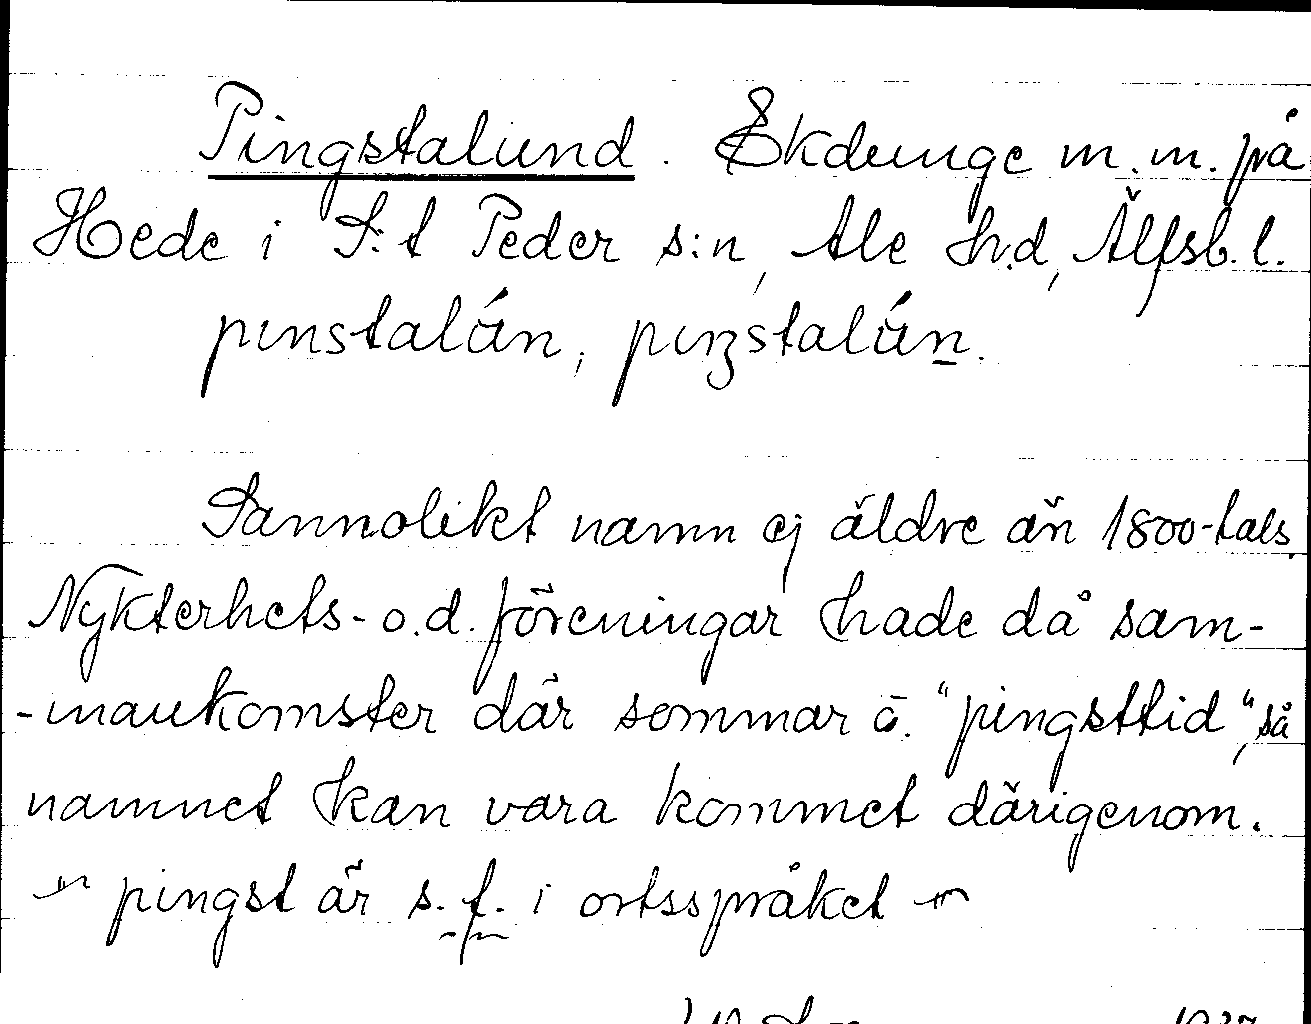 Pingstalund. Ekdunge m.m. på
Hede i S:t Peder s:n, Ale h:d, Älfsb. l.
pinstalún, piŋstalún.
Sannolikt namn ej äldre än 1800-tals.
Nykterhets- o.d. föreningar hade då sam-
-mankomster där sommar o. "pingsttid", så
namnet kan vara kommet därigenom.
~ pingst är s.f. i ortsspråket ~